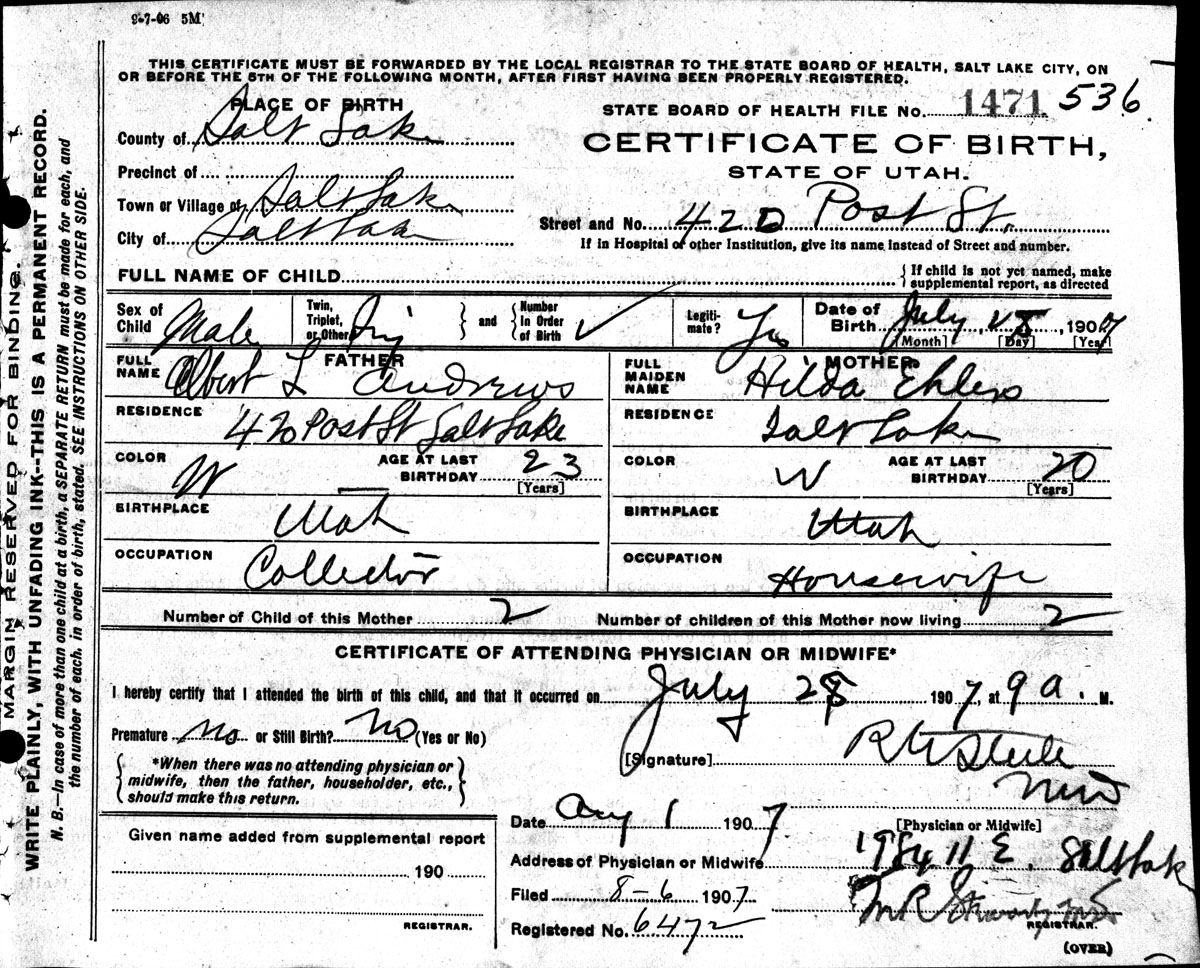 9-7-06 5M
THIS CERTIFICATE MUST BE FORWARDED BY THE LOCAL REGISTRAR TO THE STATE BOARD OF HEALTH, SALT LAKE CITY, ON
OR BEFORE THE 5TH OF THE FOLLOWING MONTH, AFTER FIRST HAVING BEEN PROPERLY REGISTERED.
PLACE OF BIRTH
County of Salt Lake
Precinct of
Town or Village of Salt Lake
City of Salt Lake
STATE BOARD OF HEALTH FILE No. 1471 536
CERTIFICATE OF BIRTH,
STATE OF UTAH.
Street and No. 420 Post St.
If in Hospital or other Institution, give its name instead of Street and number.
FULL NAME OF CHILD
If child is not yet named, make
supplemental report, as directed
Sex of Child Male Twin, Triplet, or Other and Number In Order of Birth ✓ Legiti-mate? Yes Date of Birth July 1907
[Month] [Day] [Year]
FATHER
FULL NAME Albert L Andrews
RESIDENCE 420 Post St Salt Lake
COLOR W AGE AT LAST BIRTHDAY 23
[Years]
BIRTHPLACE Utah
OCCUPATION Collector
MOTHER
FULL MAIDEN NAME Hilda Ehlers
RESIDENCE Salt Lake
COLOR W AGE AT LAST BIRTHDAY 20
[Years]
BIRTHPLACE Utah
OCCUPATION Housewife
Number of Child of this Mother 2 Number of children of this Mother now living 2
CERTIFICATE OF ATTENDING PHYSICIAN OR MIDWIFE*
I hereby certify that I attended the birth of this child, and that it occurred on July 28, 1907, at 9 a. M.
Premature no or Still Birth? No (Yes or No)
*When there was no attending physician or
midwife, then the father, householder, etc.,
should make this return.
[Signature]
[Physician or Midwife]
Date Aug 1 1907
Address of Physician or Midwife Salt Lake
Filed 8-6 1907
Registered No. 6472
REGISTRAR.
(OVER)
Given name added from supplemental report
190
REGISTRAR.
MARGIN RESERVED FOR BINDING.
WRITE PLAINLY, WITH UNFADING INK--THIS IS A PERMANENT RECORD.
N. B.—In case of more than one child at a birth, a SEPARATE RETURN must be made for each, and
the number of each, in order of birth, stated. SEE INSTRUCTIONS ON OTHER SIDE.